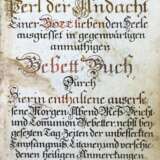 Perl der Andacht
Einer Gott liebenden Seele
ausgiesset in gegenwärtigen
anmuthigen
Gebett-Buch
Durch
hierin enthaltene auserle
sene Morgen Abend Meß Beicht
und Communion Gebetter, nebst bey
gesezten Tag-Zeiten der unbefleckten
Empfängnis Litaneyen und verschie
denen heiligen Anmerckungen